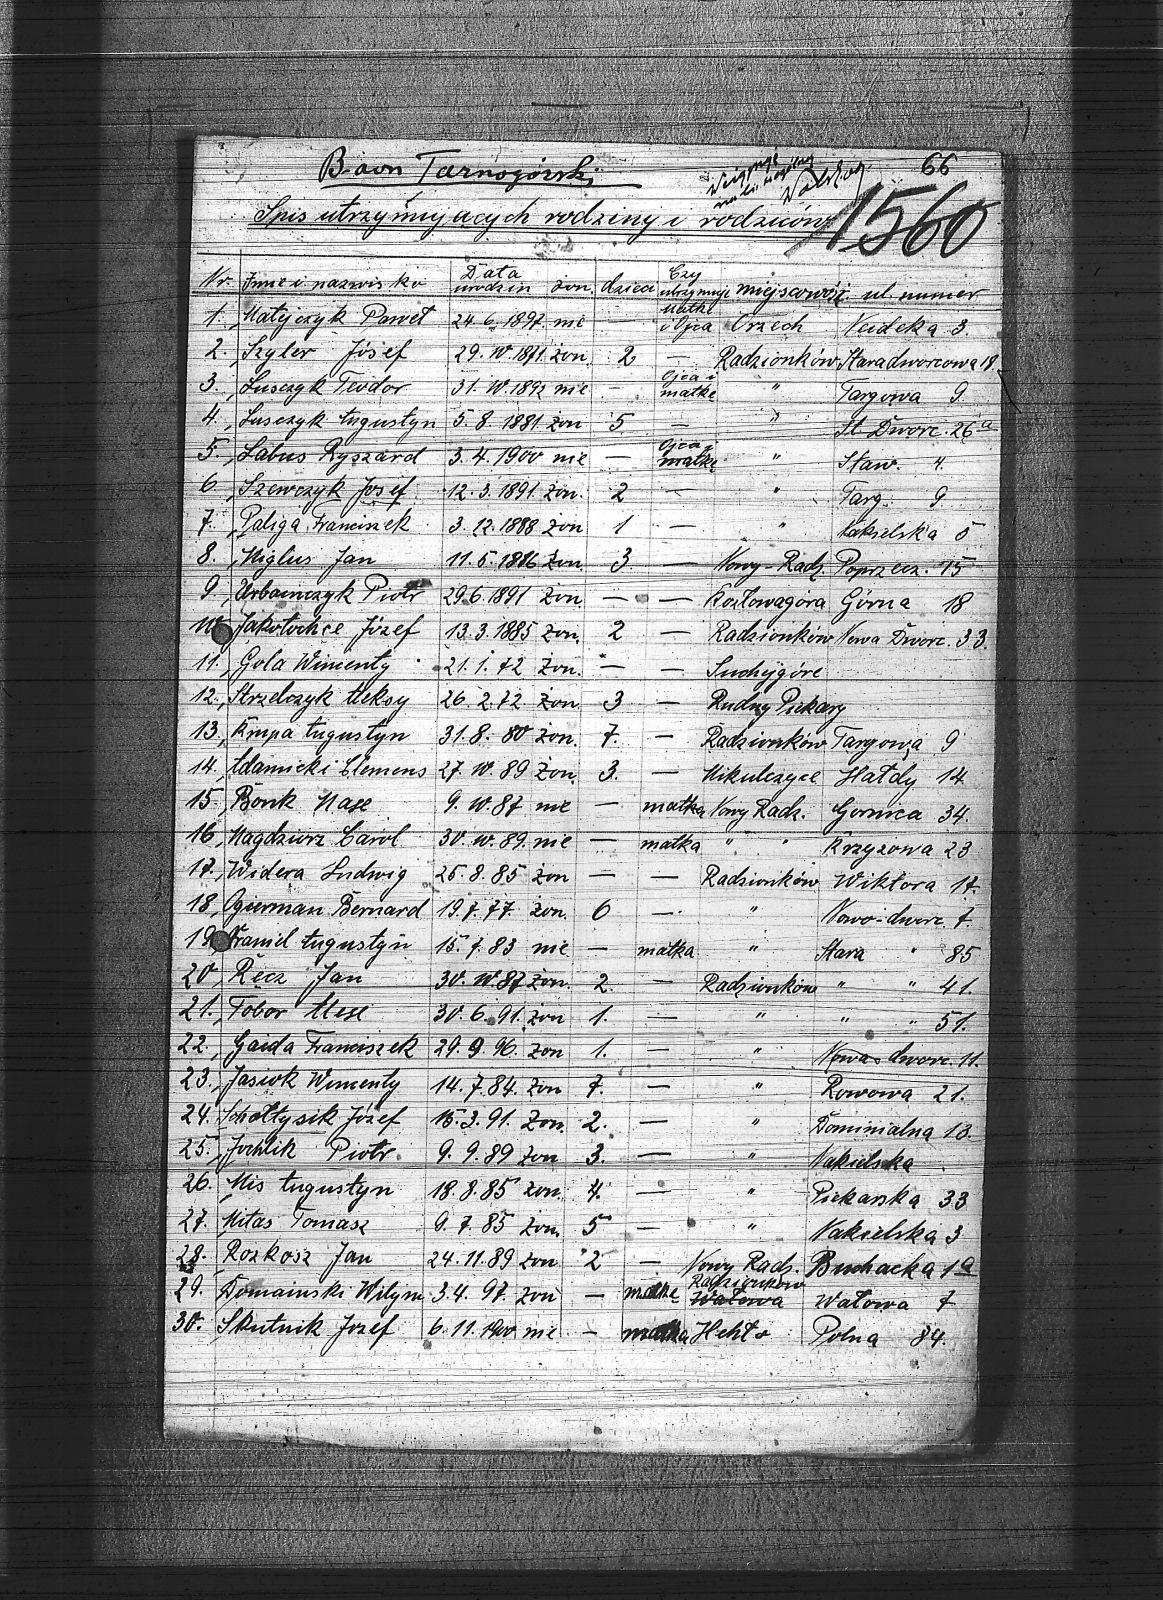 66
Baon Tarnogórski
1560
Spis utrzymujących rodziny i rodziców
Nr. Imię i nazwisko Data urodzin żon. dzieci Czy utrzymuje matkę miejscowość ul. numer
1. Matejczyk Paweł 24.6.1897 nie — i Ojca Orzech Neideka 3.
2. Szyler Józef 29.IV.1871 żon. 2 — Radzionków Staradworcowa 18.
3. Lusczyk Teodor 31.IV.1892 nie — Ojca i matkę " Targowa 9.
4. Lusczyk Augustyn 5.8.1881 żon 5 — " St Dworc. 26a
5. Labus Ryszard 3.4.1900 nie — Ojca i matkę " Staw. 4.
6. Szewczyk Josef 12.3.1891 żon. 2 — " Targ. 9.
7. Paliga Franciszek 3.12.1888 żon 1 — " Nakielska 5
8. Miglus Jan 11.5.1886 żon 3 — Nowy-Radz. Poprzecz. 15
9. Urbainczyk Piotr 29.6.1891 żon. — — Kozłowagóra Górna 18
10. Jakołochce Józef 13.3.1885 żon. 2 — Radzionków Nowa Dworc. 33.
11. Gola Wincenty 21.1.72 żon. — — Suchejgóre
12. Strzelczyk Aleksy 26.2.72 żon. 3 — Rudny Piekary
13. Krupa Augustyn 31.8.80 żon. 7. — Radzionków Targowa 9
14. Adamicki Clemens 27.IV.89 żon. 3. — Mikulczyce Hałdy 14
15. Bonk Mase 9.IV.87 nie — matka Nowy Radz. Gornica 34.
16. Magdziorz Carol 30.IV.89. nie — matka " " Krzyzowa 23
17. Widera Ludwig 25.8.85 żon — — Radzionków Wiktora 17.
18. Ogierman Bernard 19.7.77. żon. 6 — " Nowo-dworc. 7.
19. Franiel Augustyn 15.7.83 nie — matka " Stara " 85
20. Recz Jan 30.IV.87 żon. 2. — Radzionków " " 41.
21. Tobor Alese 30.6.91. żon 1. — " " " 51.
22. Gaida Franciszek 29.9.96. żon 1. — " Nowa dworc. 11.
23. Jasiok Wincenty 14.7.84. żon 7. — " Rowowa 21.
24. Schołtysik Józef 15.3.91. żon. 2. — " Dominialna 13.
25. Jochlik Piotr. 9.9.89 żon 3. — " Nakielska
26. Mis Augustyn 18.8.85 żon. 4. — " Piekarska 33
27. Mitas Tomasz 9.7.85 żon. 5 — " Nakielska 3
28. Rozkosz Jan 24.11.89 żon. 2 — Nowy Radz. Buchacka 1a
29. Domainski Wilym 3.4.97. żon — matkę Radzionków Wałowa Wałowa 7
30. Skutnik Jozef 6.11.1900 nie — matka Hehło Polna 84.